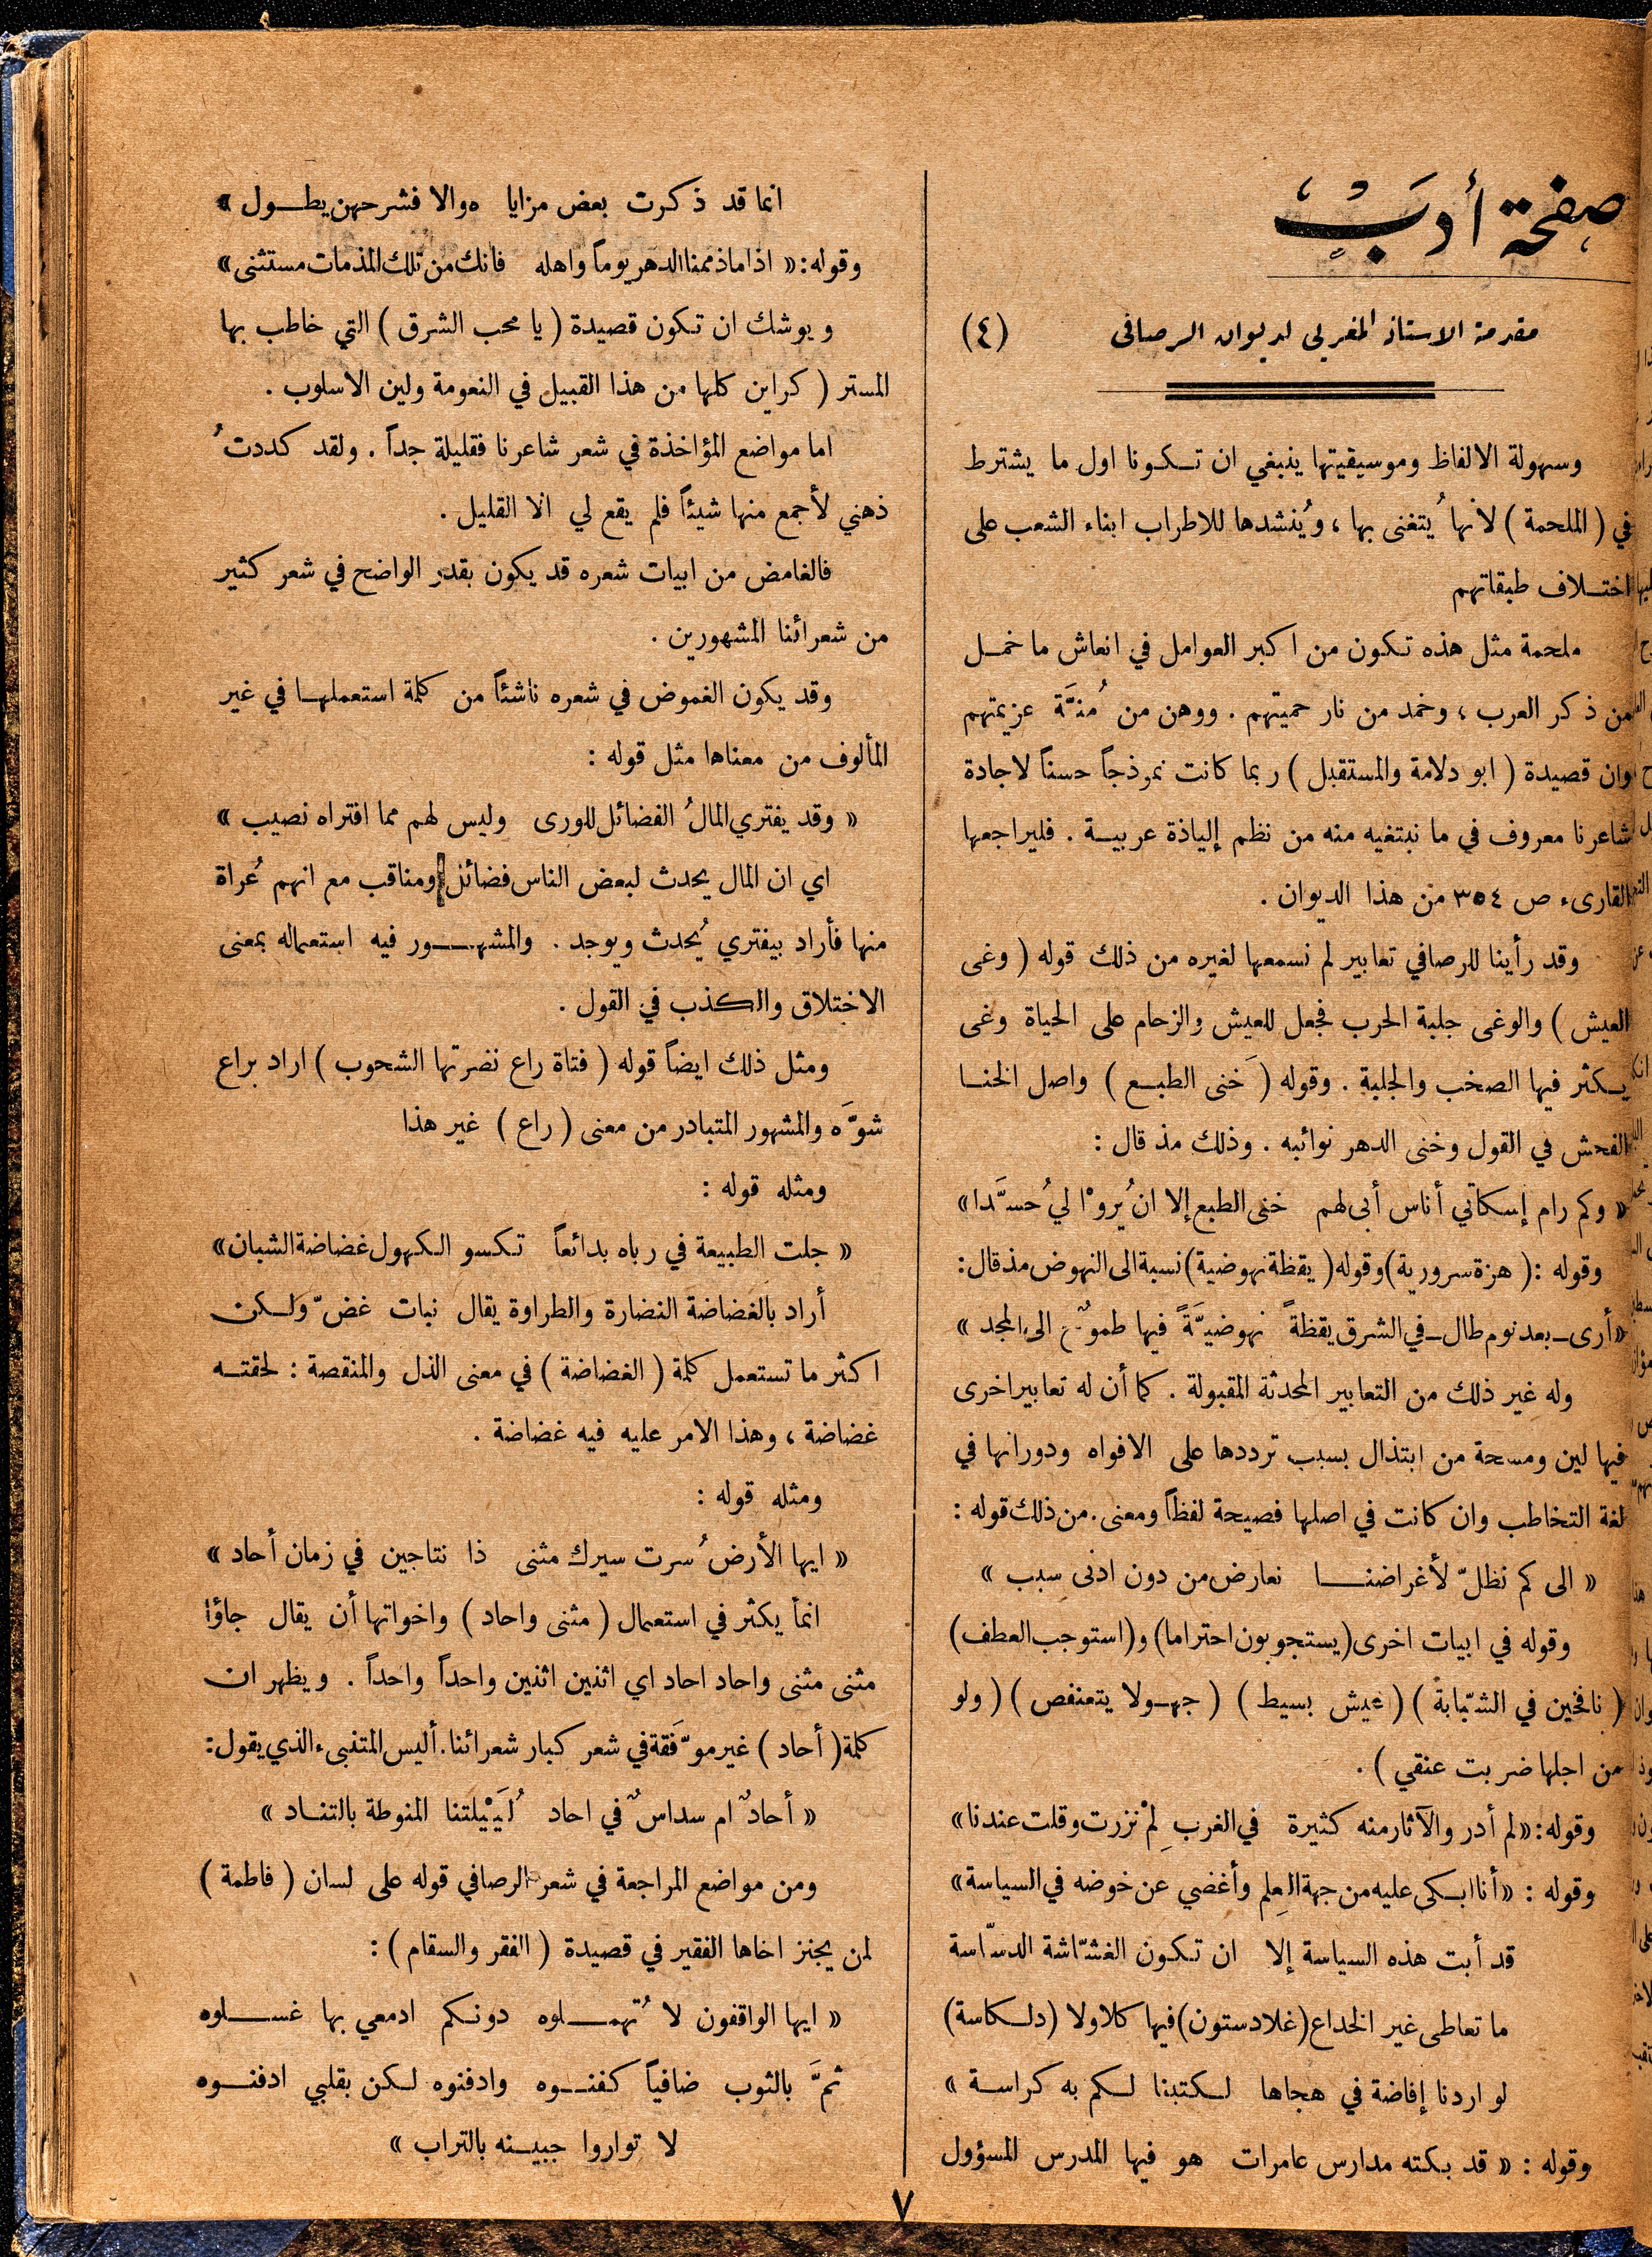 صفحة أدب
مقدمة الاستاذ المغربي لديوان الرصافي (٤)
وسهولة الالفاظ وموسيقيتها ينبغي ان تكونا اول ما يشترط
في ( الملحمة ) لأنها يُتغنى بها ، ويُنشدها للاطراب ابناء الشعب على
اختلاف طبقاتهم
ملحمة مثل هذه تكون من اكبر العوامل في انعاش ما خمل
من ذكر العرب ، وخمد من نار حميتهم . ووهن من مُنَّة عزيمتهم
وان قصيدة ( ابو دلامة والمستقبل ) ربما كانت نموذجاً حسناً لاجادة
شاعرنا معروف في ما نبتغيه منه من نظم إلياذة عربية . فليراجعها
القارىء ص ٣٥٤ من هذا الديوان .
وقد رأينا للرصافي تعابير لم نسمعها لغيره من ذلك قوله ( وغى
العيش ) والوغى جلبة الحرب فجعل للعيش والزحام على الحياة وغى
يكثر فيها الصخب والجلبة . وقوله ( خَنى الطبع ) واصل الخنا
الفحش في القول وخنى الدهر نوائبه . وذلك مذ قال :
« وكم رام إسكاتي أناس أبى لهم خنى الطبع إلا ان يُروْا لي حُسَّدا »
وقوله : ( هزة سرورية ) وقوله ( يقظة نهوضية ) نسبة الى النهوض مذ قال :
« أرى ـ بعد نوم طال ـ في الشرق يقظةً نهوضيَّةً فيها طموحٌ الى المجد »
وله غير ذلك من التعابير المحدثة المقبولة . كما أن له تعابير اخرى
فيها لين ومسحة من ابتذال بسبب ترددها على الافواه ودورانها في
لغة التخاطب وان كانت في اصلها فصيحة لفظاً ومعنى . من ذلك قوله :
« الى كم نظلّ لأغراضنا نعارض من دون ادنى سبب »
وقوله في ابيات اخرى ( يستجوبون احتراما ) و ( استوجب العطف )
( نافخين في الشبّابة ) ( عيش بسيط ) ( جهولا يتعنفص ) ( ولو
من اجلها ضربت عنقي ) .
وقوله : « لم أدر والآثار منه كثيرة في الغرب لِمْ نزرت وقلت عندنا »
وقوله : « أنا ابكى عليه من جهة العِلم وأغضي عن خوضه في السياسة »
قد أبت هذه السياسة إلا ان تكون الغشّاشة الدسّاسة
ما تعاطى غير الخداع ( غلادستون ) فيها كلا ولا ( دلكاسة )
لو اردنا إفاضة في هجاها لكتبنا لكم به كراسة »
وقوله : « قد بكته مدارس عامرات هو فيها المدرس المسؤول
انما قد ذكرت بعض مزايا ه والا فشرحهن يطول »
وقوله : « اذا ما ذممنا الدهر يوماً واهله فانك من تلك المذمات مستثنى »
ويوشك ان تكون قصيدة ( يا محب الشرق ) التي خاطب بها
المستر ( كراين كلها من هذا القبيل في النعومة ولين الاسلوب .
اما مواضع المؤاخذة في شعر شاعرنا فقليلة جداً . ولقد كددتُ
ذهني لأجمع منها شيئاً فلم يقع لي الا القليل .
فالغامض من ابيات شعره قد يكون بقدر الواضح في شعر كثير
من شعرائنا المشهورين .
وقد يكون الغموض في شعره ناشئاً من كلمة استعملها في غير
المألوف من معناها مثل قوله :
« وقد يفتري المالُ الفضائل للورى وليس لهم مما افتراه نصيب »
اي ان المال يحدث لبعض الناس فضائل ومناقب مع انهم عُراة
منها فأراد بيفتري يُحدث ويوجد . والمشهور فيه استعماله بمعنى
الاختلاق والكذب في القول .
ومثل ذلك ايضاً قوله ( فتاة راع نضرتها الشحوب ) اراد براع
شوَّه والمشهور المتبادر من معنى ( راع ) غير هذا
ومثله قوله :
« جلت الطبيعة في رباه بدائعاً تكسو الكهول غضاضة الشبان »
أراد بالغضاضة النضارة والطراوة يقال نبات غضّ ولكن
اكثر ما تستعمل كلمة ( الغضاضة ) في معنى الذل والمنقصة : لحقته
غضاضة ، وهذا الامر عليه فيه غضاضة .
ومثله قوله :
« ايها الأرضُ سرت سيرك مثنى ذا نتاجين في زمان أحاد »
انما يكثر في استعمال ( مثنى واحاد ) واخواتها أن يقال جاؤا
مثنى مثنى واحاد احاد اي اثنين اثنين واحداً واحداً . ويظهر ان
كلمة ( أحاد ) غير موفَّقة في شعر كبار شعرائنا . أليس المتنبىء الذي يقول :
« أحادٌ ام سداسٌ في احاد لُيَيْلتنا المنوطة بالتناد »
ومن مواضع المراجعة في شعر الرصافي قوله على لسان ( فاطمة )
لمن يجنز اخاها الفقير في قصيدة ( الفقر والسقام ) :
« ايها الواقفون لا تُهملوه دونكم ادمعي بها غسلوه
ثمَّ بالثوب ضافياً كفنوه وادفنوه لكن بقلبي ادفنوه
لا تواروا جبينه بالتراب »
٧